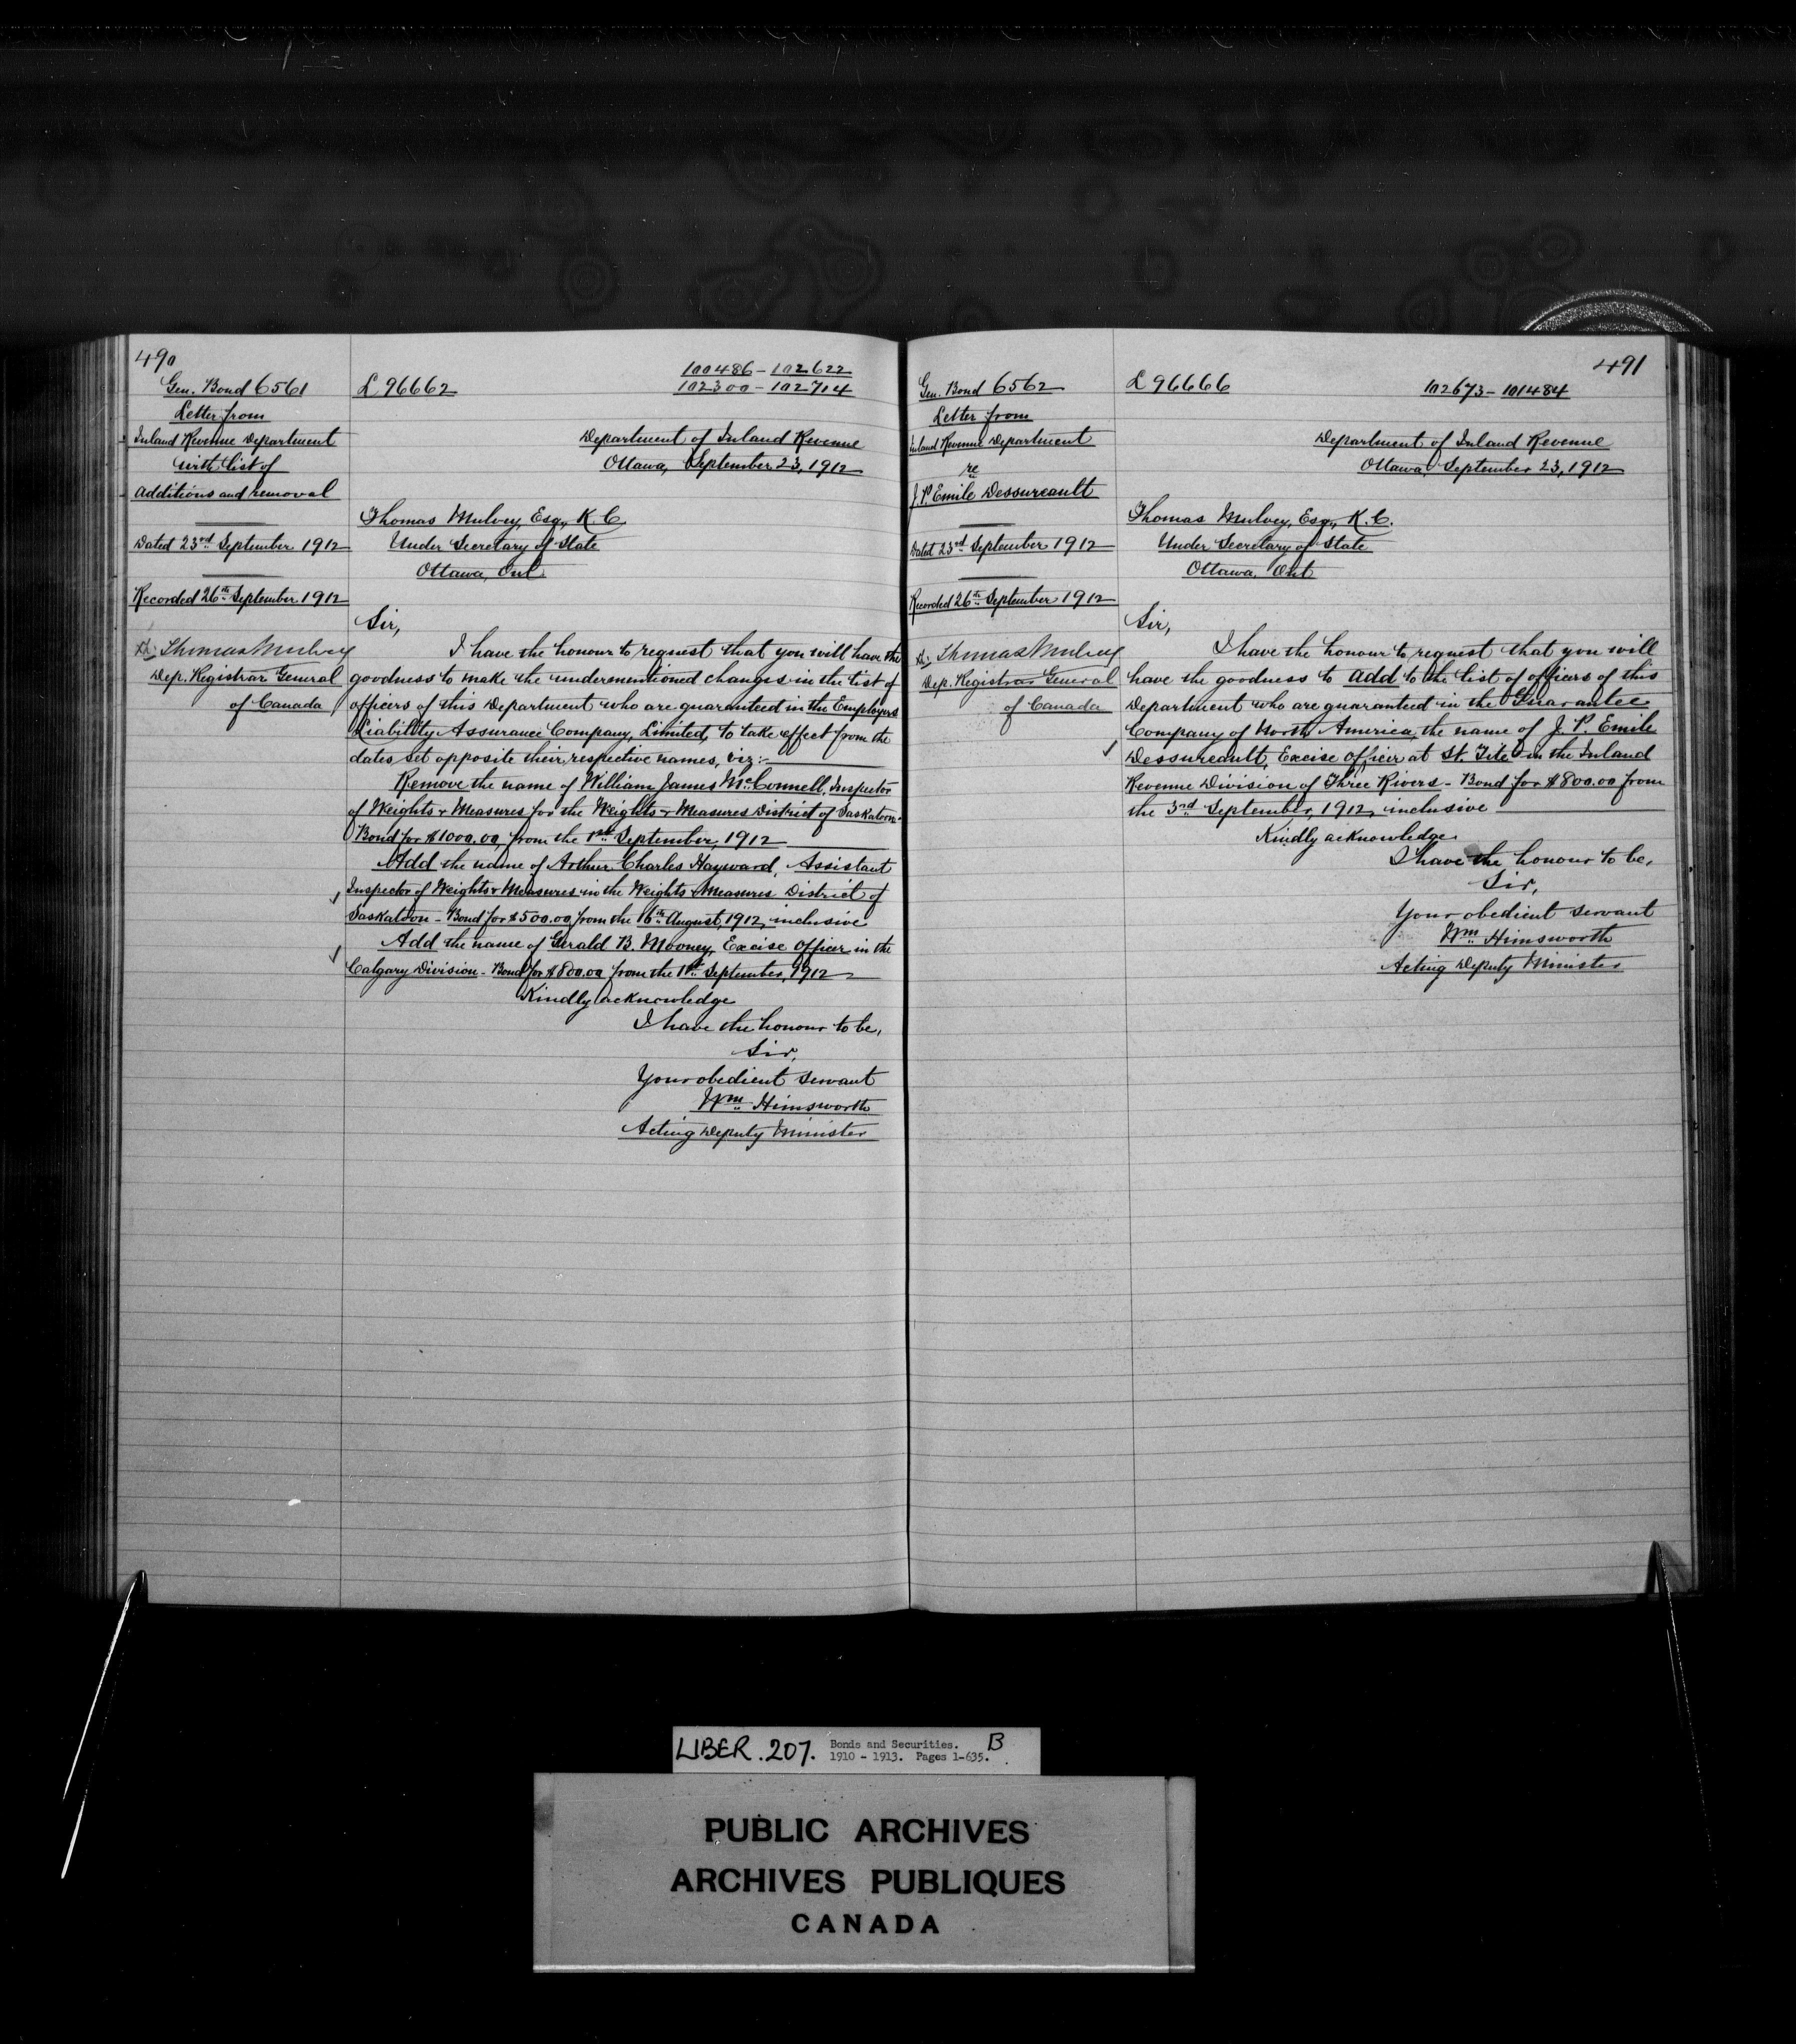 490
Gen. Bond 6561
Letter from
Inland Revenue Department
with list of
additions and removal
Dated 23rd September 1912
Recorded 26th September 1912
Thomas Mulvey
Dep. Registrar General
of Canada
L 96662
100486 - 102622
102300 - 102714
Department of Inland Revenue
Ottawa, September 23, 1912
Thomas Mulvey, Esq., K.C.
Under Secretary of State
Ottawa, Ont
Sir,
I have the honour to request that you will have the
goodness to make the undermentioned changes in the list of
officers of this Department who are guaranteed in the Employers
Liability Assurance Company, Limited, to take effect from the
dates set opposite their respective names, viz:-
Remove the name of William James McConnell, Inspector
of Weights & Measures for the Weights & Measures District of Saskatoon-
Bond for $1000.00, from the 1st September, 1912
Add the name of Arthur Charles Hayward, Assistant
Inspector of Weights & Measures in the Weights & Measures District of
Saskatoon - Bond for $500.00 from the 16th August, 1912, inclusive
Add the name of Gerald B. Mooney, Excise Officer in the
Calgary Division - Bond for $800.00 from the 1st September, 1912
Kindly acknowledge
I have the honour to be,
Sir,
Your obedient servant
Wm Himsworth
Acting Deputy Minister
491
Gen. Bond 6562
Letter from
Inland Revenue Department
re
J. P. Emile Dessureault
Dated 23rd September 1912
Recorded 26th September 1912
Thomas Mulvey
Dep. Registrar General
of Canada
L 96666
102673 - 101484
Department of Inland Revenue
Ottawa, September 23, 1912
Thomas Mulvey, Esq., K.C.
Under Secretary of State
Ottawa, Ont
Sir,
I have the honour to request that you will
have the goodness to add to the list of officers of this
Department who are guaranteed in the Guarantee
Company of North America, the name of J. P. Emile
Dessureault, Excise Officer at St. Tite in the Inland
Revenue Division of Three Rivers - Bond for $800.00 from
the 3rd September, 1912, inclusive
Kindly acknowledge
I have the honour to be,
Sir,
Your obedient servant
Wm Himsworth
Acting Deputy Minister
LIBER. 207. Bonds and Securities. B
1910 - 1913. Pages 1-635.
PUBLIC ARCHIVES
ARCHIVES PUBLIQUES
CANADA